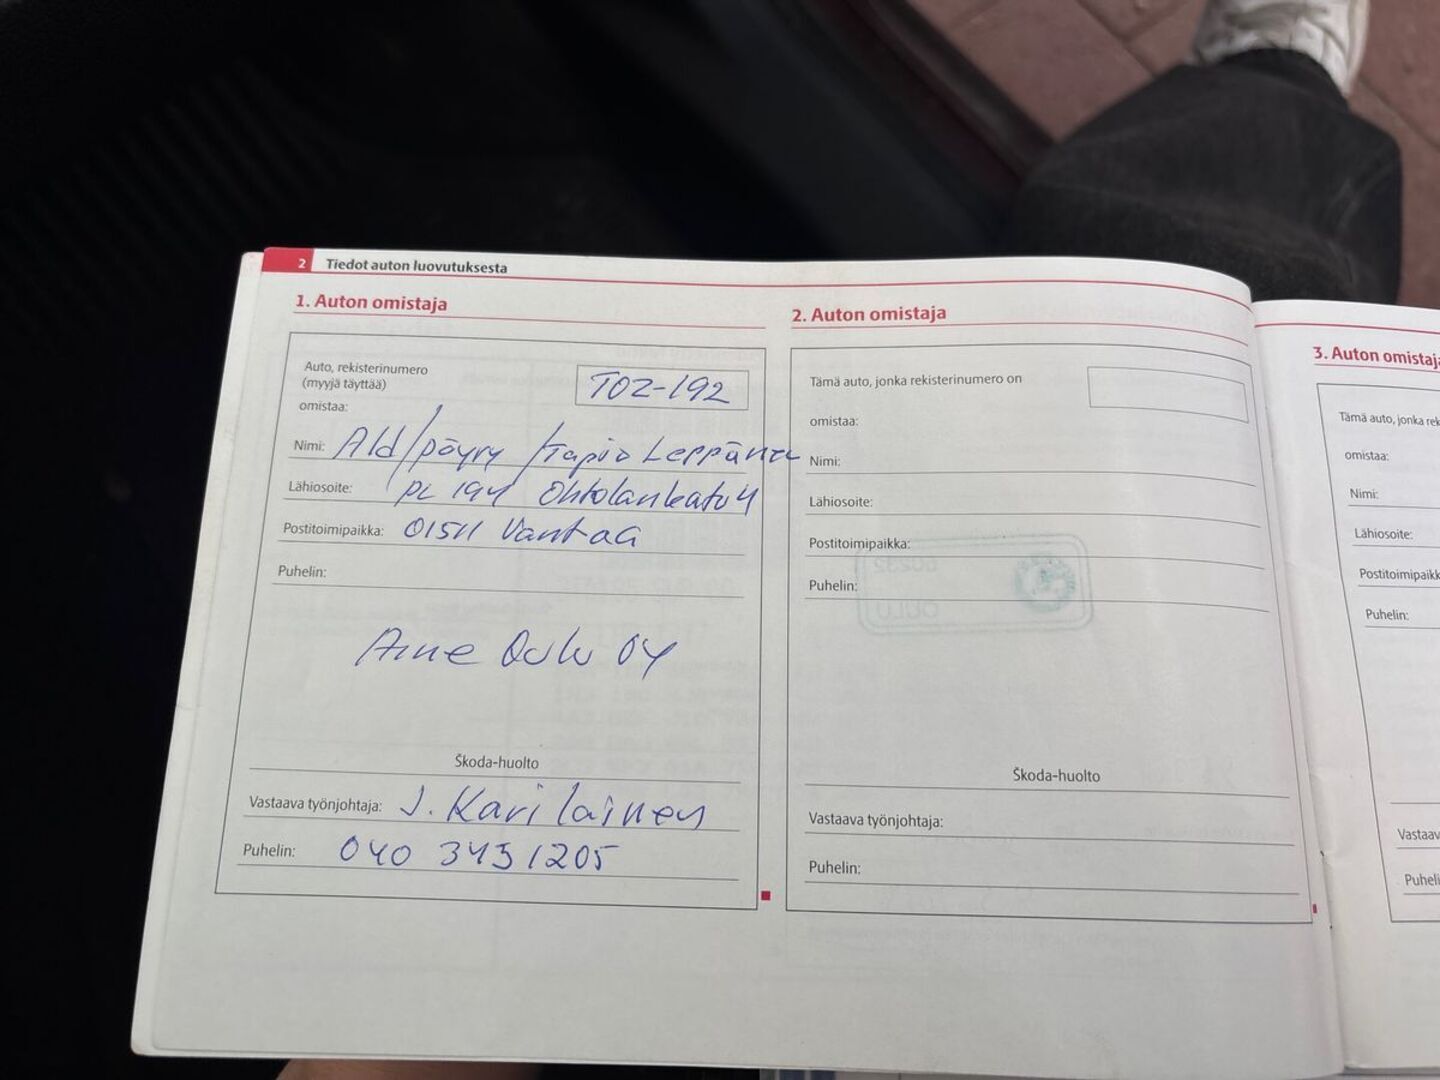 2 Tiedot auton luovutuksesta
1. Auton omistaja
Auto, rekisterinumero
(myyjä täyttää)
TOZ-192
omistaa:
Nimi: Ald/pöyry/Tapio Leppänen
Lähiosoite: PL 194 Ohtolankatu 4
Postitoimipaikka: 01511 Vantaa
Puhelin:
Oulu OY
Škoda-huolto
Vastaava työnjohtaja: J. Karilainen
Puhelin: 040 3451205
2. Auton omistaja
Tämä auto, jonka rekisterinumero on
omistaa:
Nimi:
Lähiosoite:
Postitoimipaikka:
Puhelin:
Škoda-huolto
Vastaava työnjohtaja:
Puhelin:
3. Auton omistaja
Tämä auto, jonka rek
omistaa:
Nimi:
Lähiosoite:
Postitoimipaikk
Puhelin:
Vastaav
Puheli